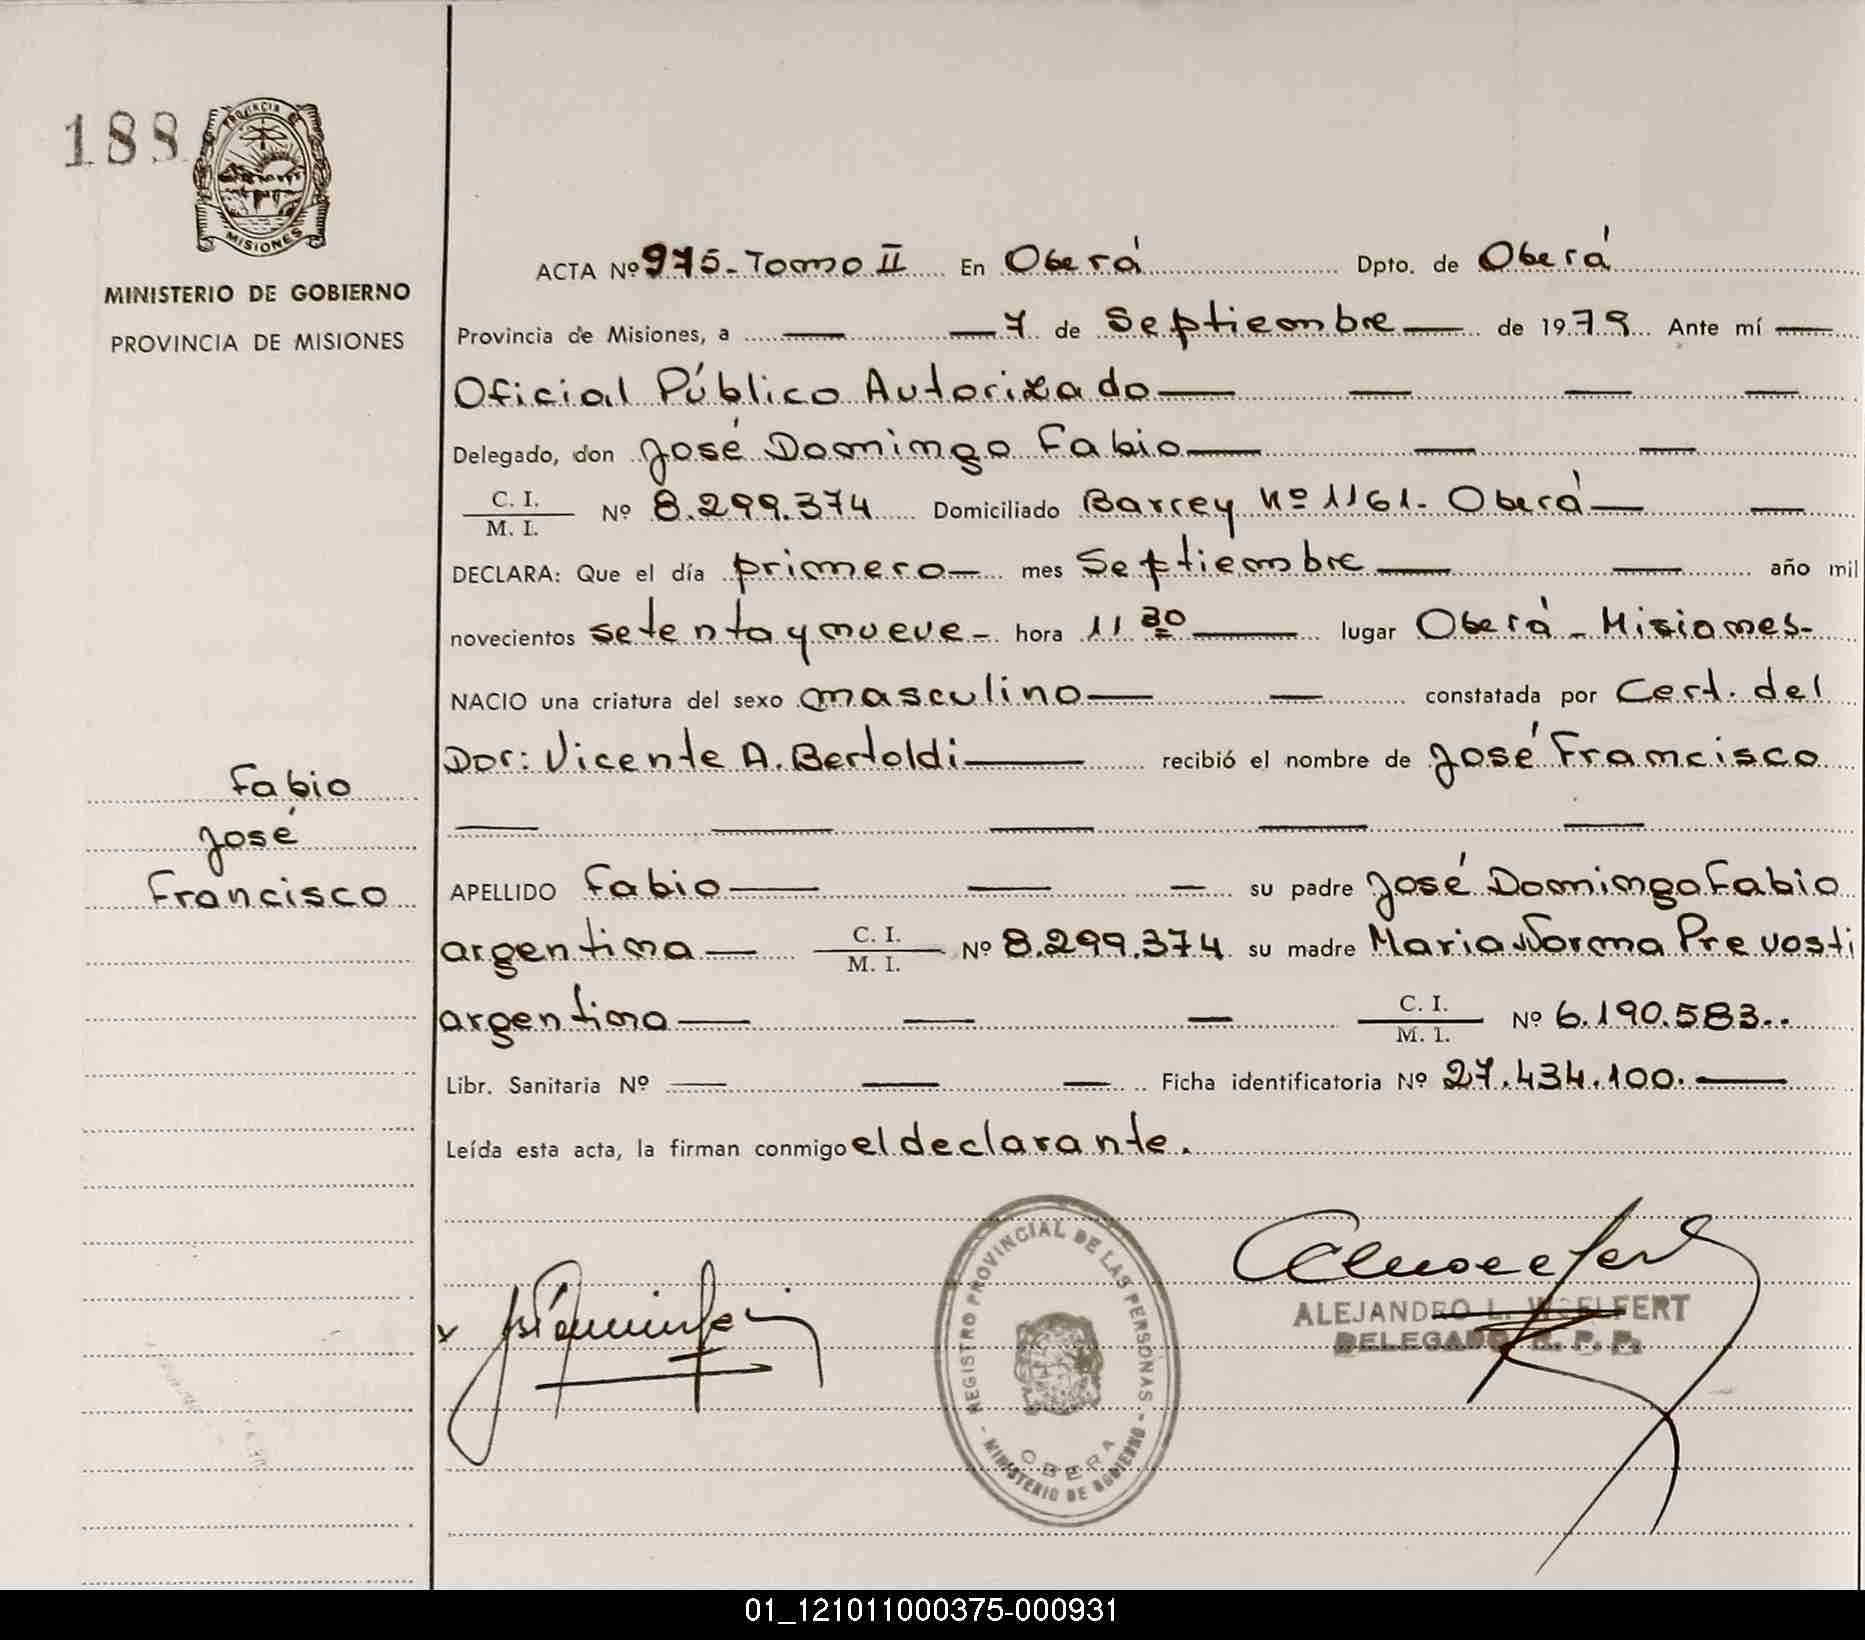 188
PROVINCIA DE
MISIONES
MINISTERIO DE GOBIERNO
PROVINCIA DE MISIONES
Fabio
José
Francisco
ACTA Nº 975 - Tomo II En Oberá Dpto. de Oberá
Provincia de Misiones, a — — 7 de Septiembre — de 1979 Ante mí —
Oficial Público Autorizado — — — —
Delegado, don José Domingo Fabio — — —
C. I.
M. I. Nº 8.299.374 Domiciliado Barrey Nº 1161 - Oberá — —
DECLARA: Que el día primero — mes Septiembre — — año mil
novecientos setenta y nueve - hora 11 30 — lugar Oberá - Misiones -
NACIO una criatura del sexo masculino — — constatada por Cert. del
Dor: Vicente A. Bertoldi — recibió el nombre de José Francisco
— — — — —
APELLIDO Fabio — — — su padre José Domingo Fabio
argentina — C. I.
M. I. Nº 8.299.374 su madre Maria Norma Prevosti
argentina — — — C. I.
M. I. Nº 6.190.583..
Libr. Sanitaria Nº — — — Ficha identificatoria Nº 27.434.100. —
Leída esta acta, la firman conmigo el declarante.
REGISTRO PROVINCIAL DE LAS PERSONAS
OBERA
- MINISTERIO DE GOBIERNO -
ALEJANDRO L. WOELFERT
DELEGADO R. P. P.
01_121011000375-000931